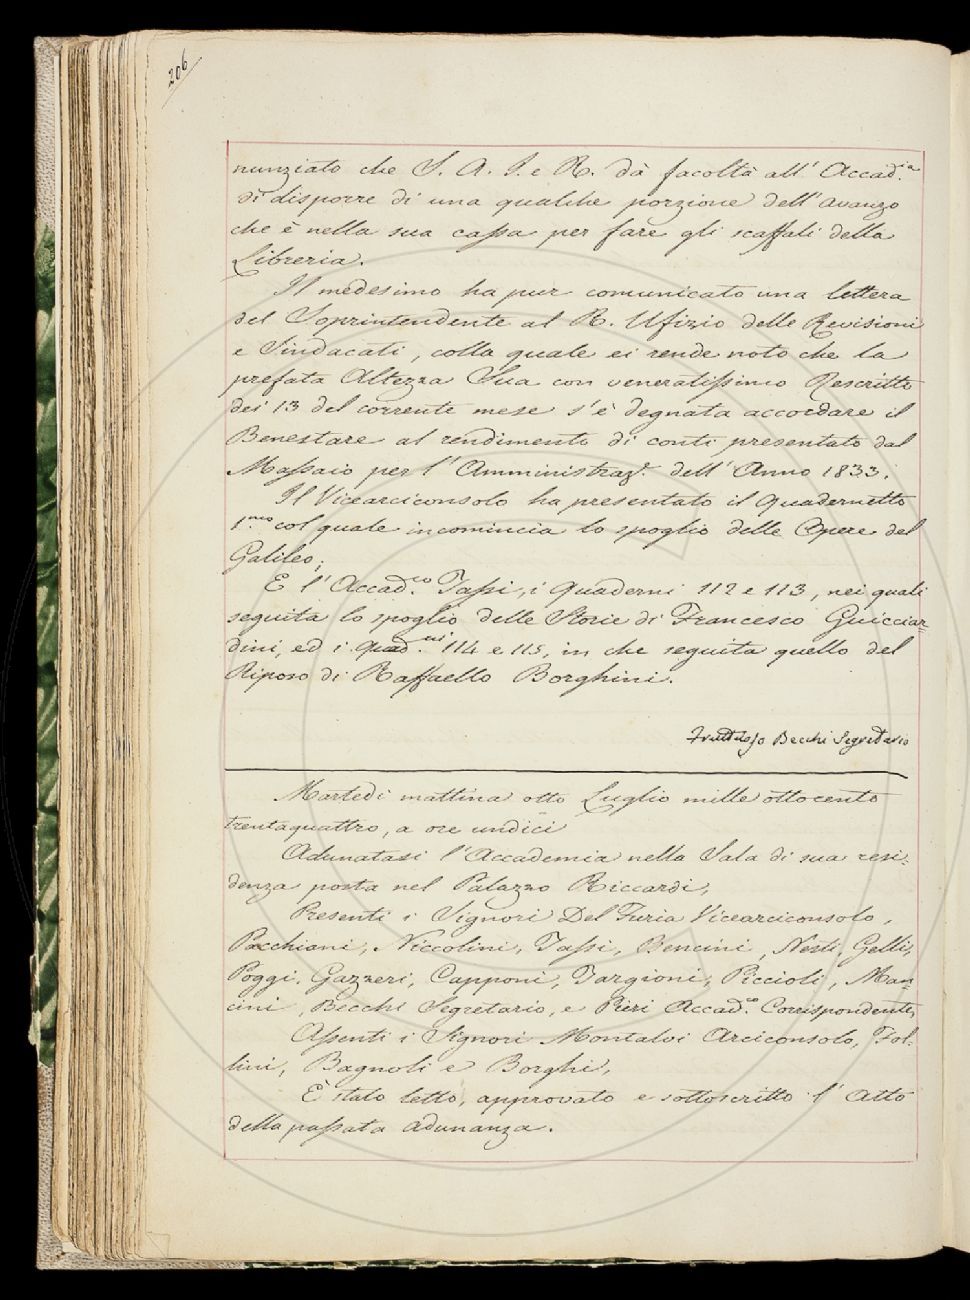 206
nunziato che S. A. I. e R. dà facoltà all' Accad.ia
di disporre di una qualche porzione dell'avanzo
che è nella sua cassa per fare gli scaffali della
Libreria.
Il medesimo ha pur comunicato una lettera
del Soprintendente al R. Ufizio delle Revisioni
e Sindacati, colla quale ei rende noto che la
prefata Altezza Sua con veneratissimo Rescritto
dei 13 del corrente mese s'è degnata accordare il
Benestare al rendimento di conti presentato dal
Massaio per l'Amministraz.e dell'Anno 1833.
Il Vicearciconsolo ha presentato il quadernetto
1.mo col quale incomincia lo spoglio delle Opere del
Galileo;
E l'Accad.co Tassi, i Quaderni 112 e 113, nei quali
seguita lo spoglio delle Storie di Francesco Guicciar=
dini, ed i quad.ni 114 e 115, in che seguita quello del
Riposo di Raffaello Borghini.
Fruttuoso Becchi Segretario
Martedì mattina otto Luglio mille ottocento
trentaquattro, a ore undici
Adunatasi l'Accademia nella Sala di sua resi=
denza posta nel Palazzo Riccardi,
Presenti i Signori Del Furia Vicearciconsolo,
Pacchiani, Niccolini, Tassi, Bencini, Nesti, Gelli,
Poggi, Gazzeri, Capponi, Targioni, Piccioli, Man=
cini, Becchi Segretario, e Pieri Accad.co Corrispondente,
Assenti i Signori Montalvi Arciconsolo, Fol=
lini, Bagnoli e Borghi,
È stato letto, approvato e sottoscritto l'Atto
della passata adunanza.